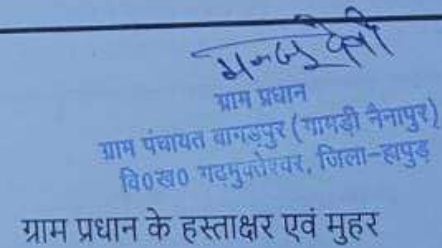 मन्जू देवी
ग्राम प्रधान
ग्राम पंचायत बागड़पुर (गामड़ी नैनापुर)
वि0ख0 गढ़मुक्तेश्वर, जिला-हापुड़
ग्राम प्रधान के हस्ताक्षर एवं मुहर